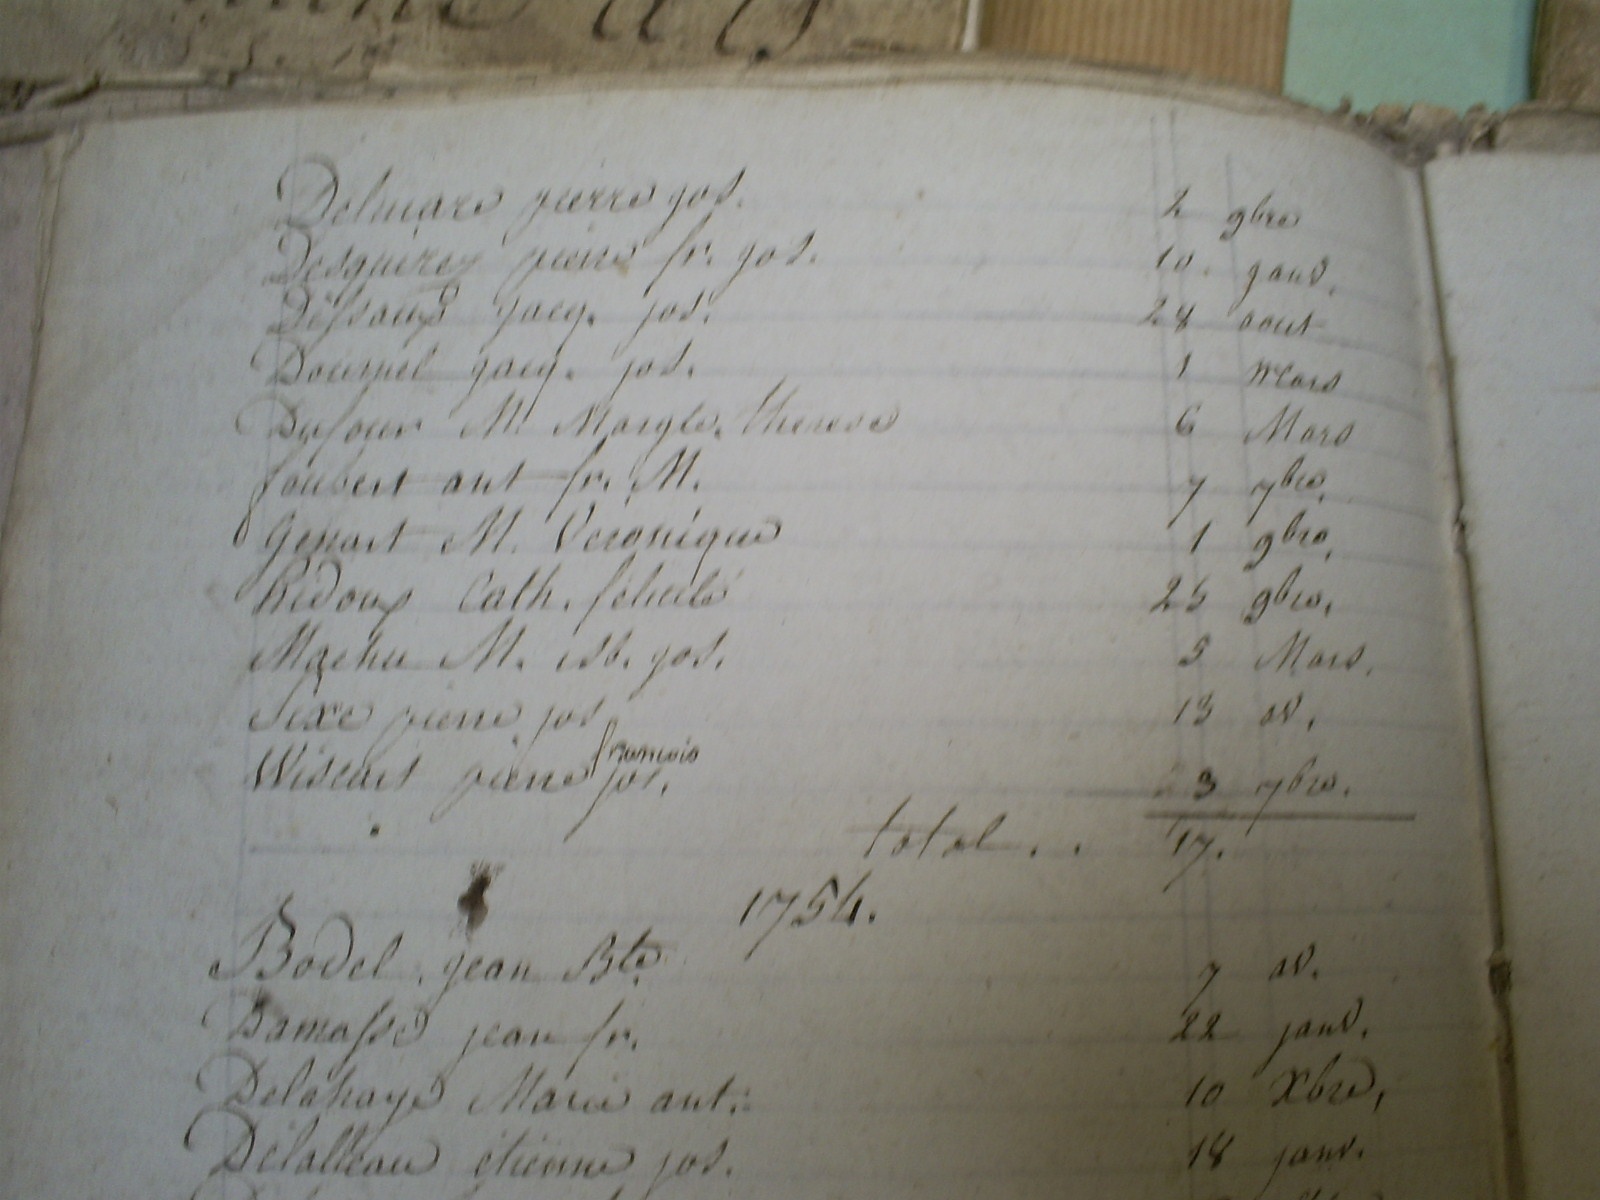 Delmare pierre jos. 2 9bre
Desquirez pierre fr. jos. 10. janv.
Dissaux jacq. jos. 28 aout
Dournel jacq. jos. 1 Mars
Dufour M. Margte. therese 6 Mars
foubert ant fr. M. 7 7bre.
Genart M. Veronique 1 9bre.
hidoux Cath. felicité 25 9bre.
Machu M. isb. jos. 5 Mars.
Sixe pierre jos 13 av.
francois
Wiscart pierre jos. 3 7bre.
total . . 17.
1754.
Bodel jean Bte. 7 av.
Damasse jean fr. 22 janv.
Delahaye Marie ant. 10 Xbre,
Delatteau étienne jos. 18 janv.